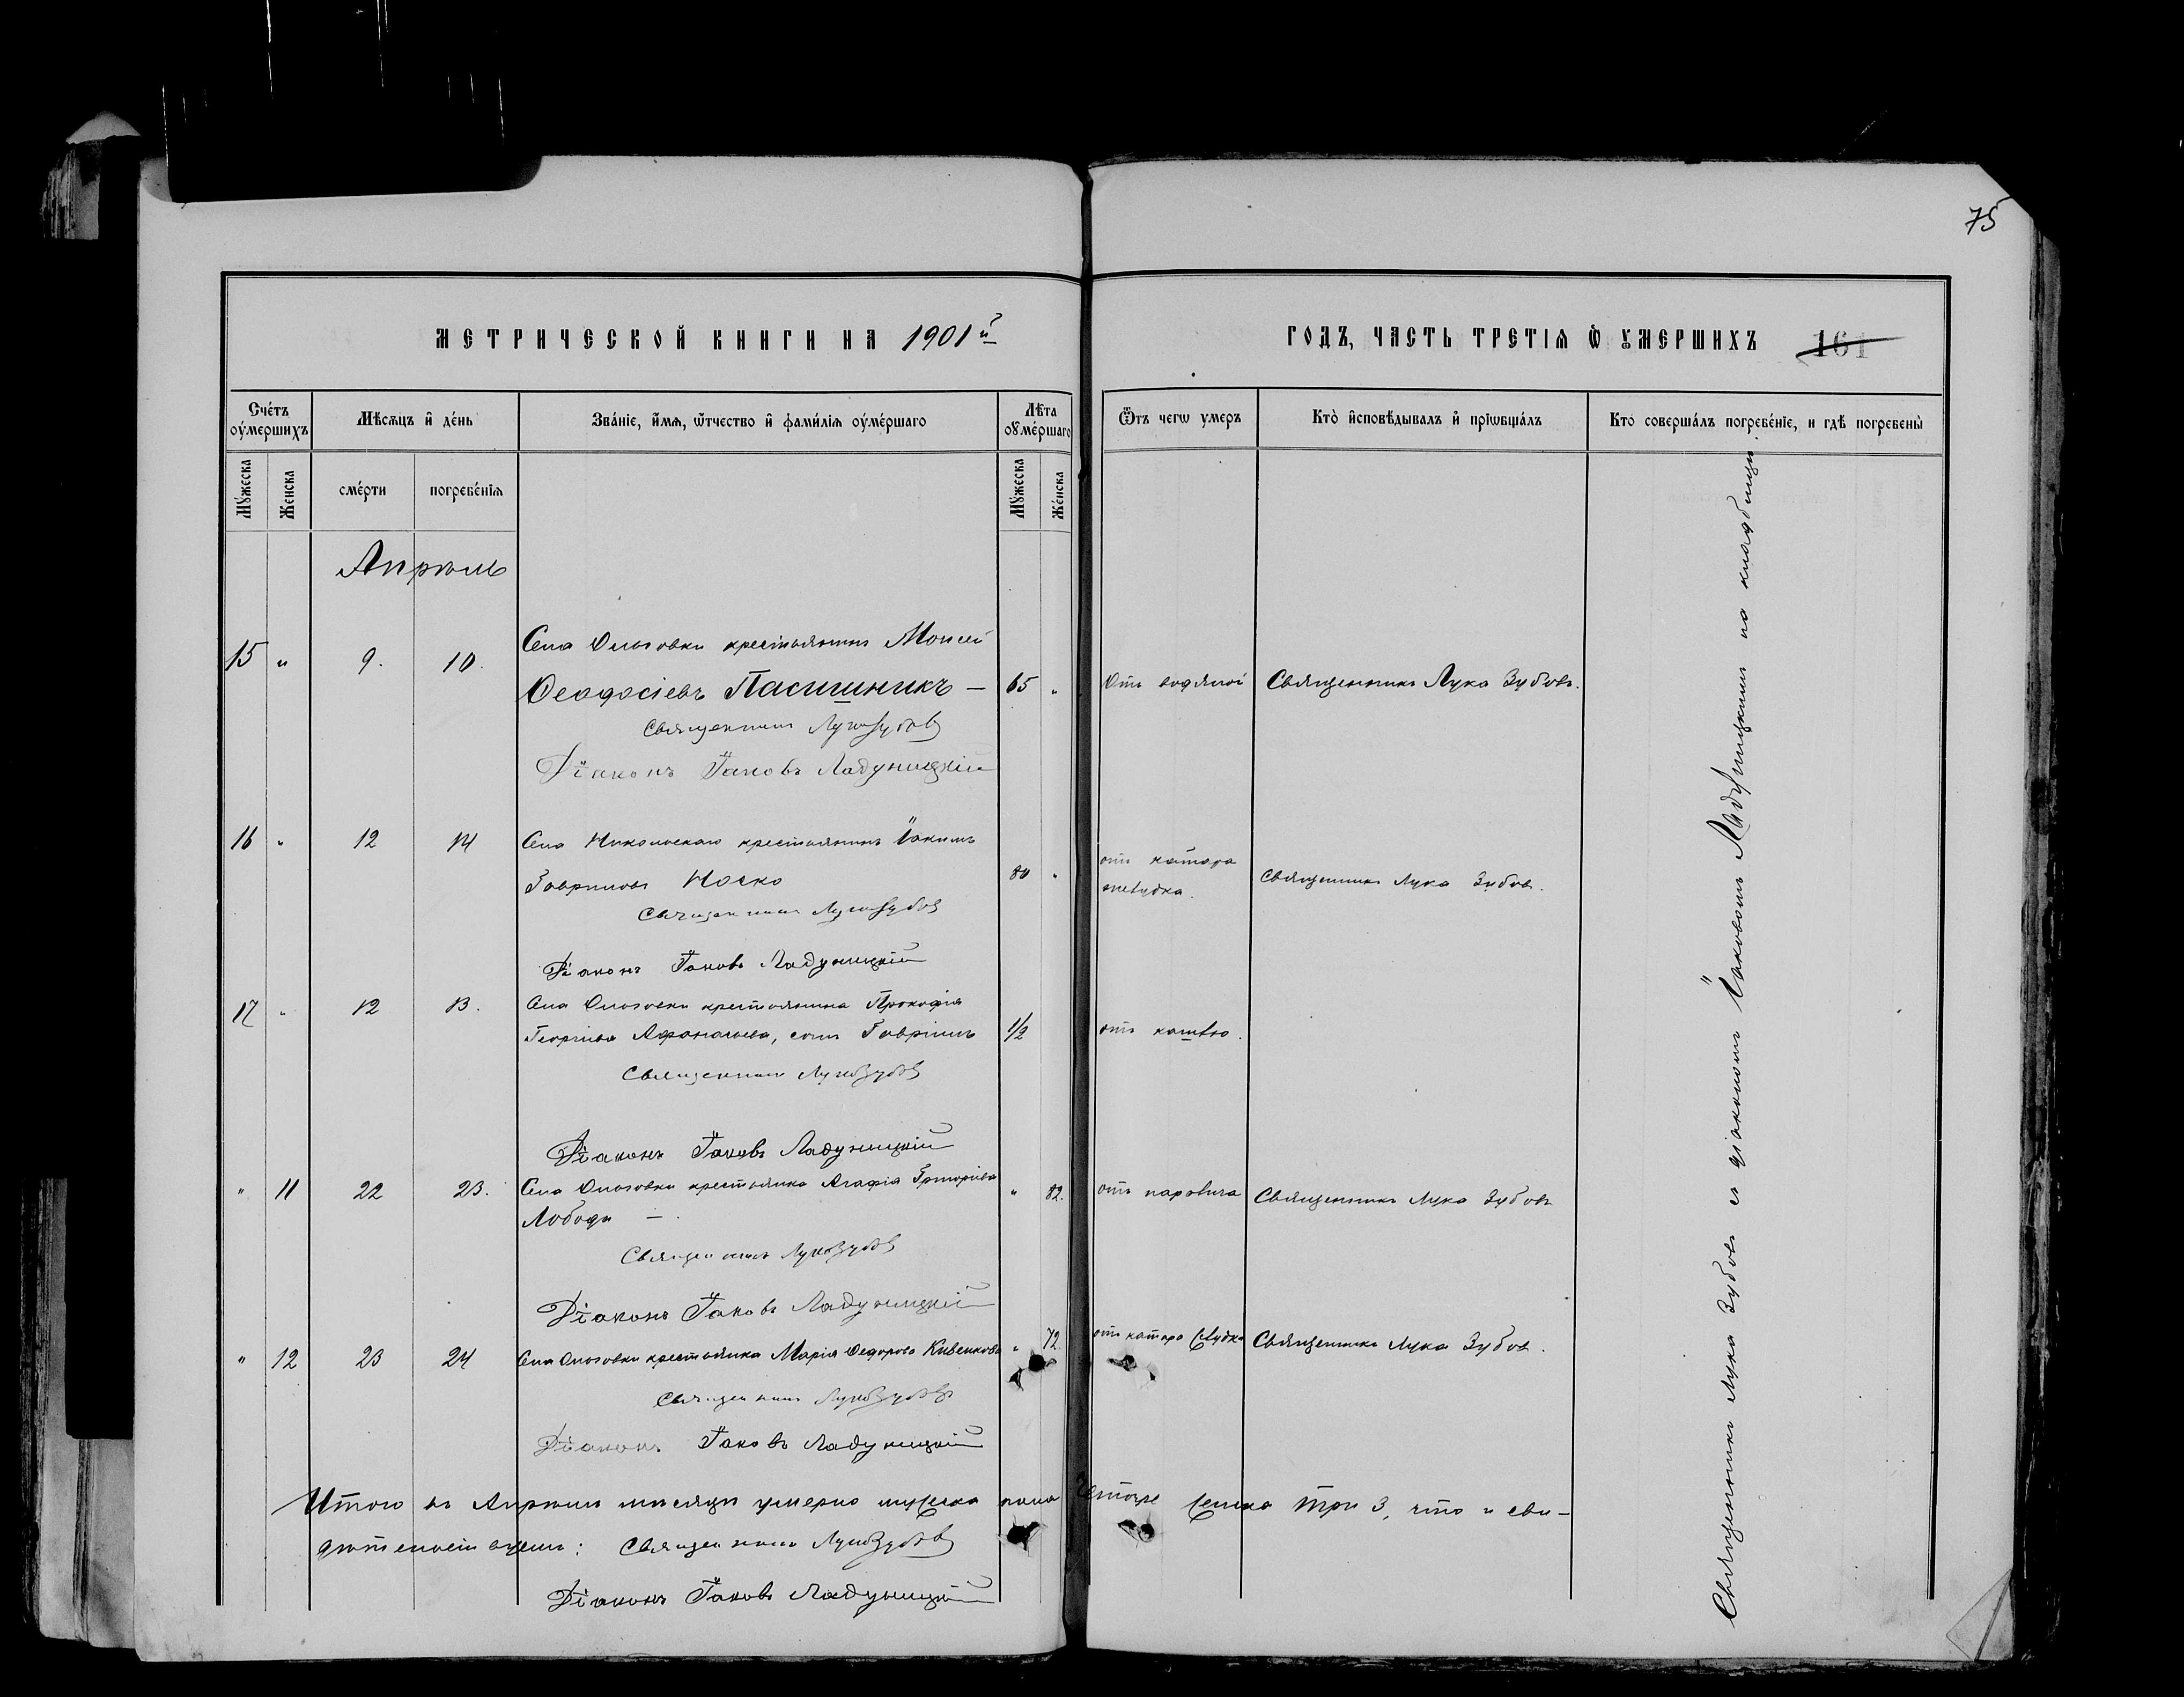 75
МЕТРИЧЕСКОЙ КНИГИ НА 1901й
ГОДЪ, ЧАСТЬ ТРЕТІѦ Ѽ ОУМЕРШИХЪ 161
Счетъ оумершихъ
Мѣсѧцъ и день
Званіе, имѧ, ѿчество и фамиліѧ оумершаго
Лѣта оумершаго
Ѿтъ чегѡ умеръ
Кто исповѣдывалъ и пріѡбщалъ
Кто совершалъ погребеніе, и гдѣ погребены
Мужеска
Женска
смерти
погребеніѧ
Мужеска
Женска
Апрѣль
15 " 9. 10. Села Ольговки крестьянинъ Моисей
Ѳеодосіевъ Пасишникъ — 65 " Отъ водяной Священникъ Лука Зубовъ.
Священникъ Лука Зубовъ
Діаконъ Іаковъ Ладуницкій
16 " 12 14 Села Никольскаго крестьянинъ Іакимъ
Гавриловъ Носко 80 " отъ катара желудка. Священникъ Лука Зубовъ.
Священникъ Лука Зубовъ
Діаконъ Іаковъ Ладуницкій
17 " 12 13. Села Ольговки крестьянина Прокофія
Георгіева Афанасьева, сынъ Гавріилъ 1/2 отъ кашлю.
Священникъ Лука Зубовъ
Діаконъ Іаковъ Ладуницкій
" 11 22 23. Села Ольговки крестьянка Агафія Григоріева
Лобода — " 82. отъ паровича Священникъ Лука Зубовъ
Священникъ Лука Зубовъ
Діаконъ Іаковъ Ладуницкій
" 12 23 24 Села Ольговки крестьянка Марія Ѳедорова Кивенкова " 72 отъ катара желудка Священникъ Лука Зубовъ.
Священникъ Лука Зубовъ
Діаконъ Іаковъ Ладуницкій
Итого въ Апрѣлѣ мѣсяцѣ умерло мужеска пола четыре женска три 3, что и сви-
дѣтельствуемъ: Священникъ Лука Зубовъ
Діаконъ Іаковъ Ладуницкій
Священникъ Лука Зубовъ съ діакономъ Іаковомъ Ладуницкимъ на кладбищѣ